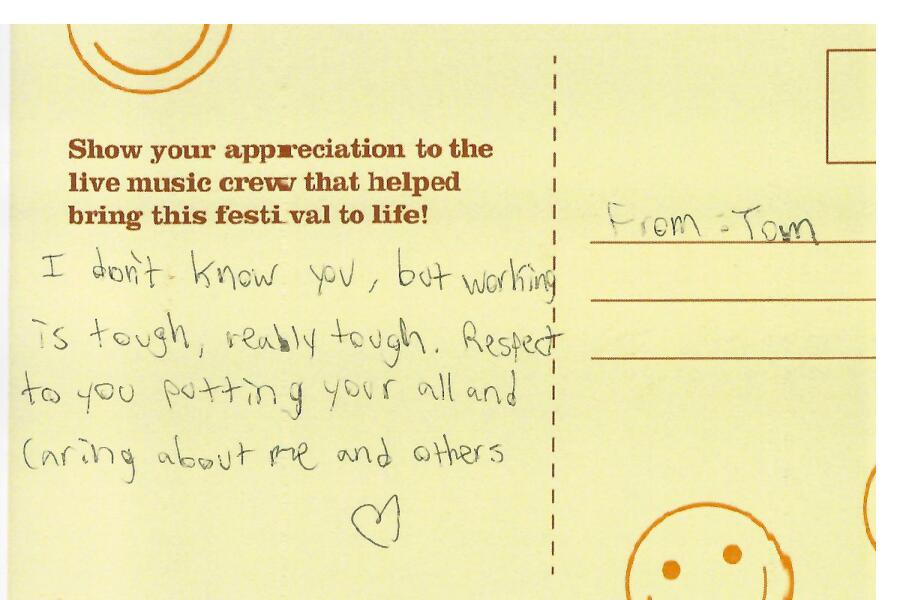 Show your appreciation to the
live music crew that helped
bring this festival to life!
I don't know you, but working
is tough, really tough. Respect
to you putting your all and
Caring about me and others
From: Tom